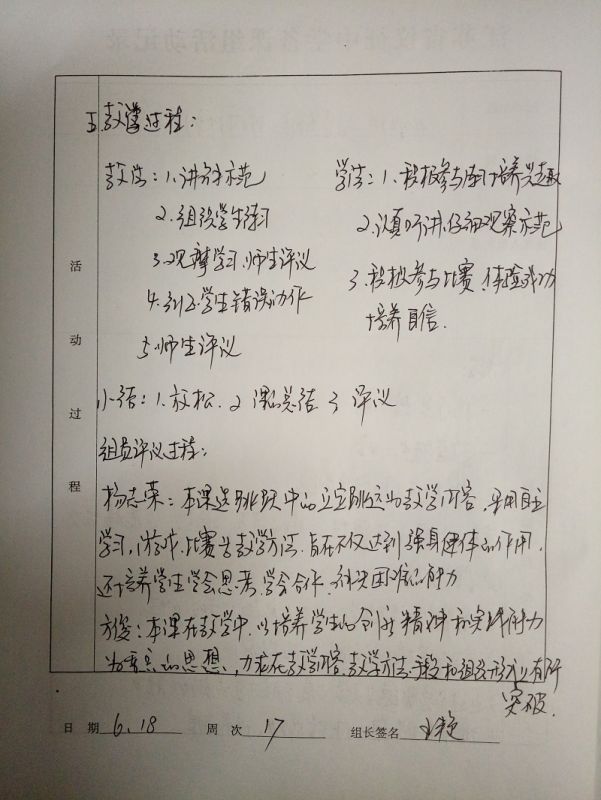 五.教学过程:
教法:1.讲解示范
学法:1.积极参与练习培养兴趣
2.组织学生练习
2.认真听讲,仔细观察示范
3.观摩学习,师生评议
3.积极参与比赛,体验成功
4.纠正学生错误动作
培养自信.
5.师生评议
活动过程
小结:1.放松.2课的总结 3评议
组员评议过程:
杨志荣:本课选跳跃中的立定跳远为教学内容,采用自主
学习,游戏,比赛等教学方法,旨在不仅达到强身健体的作用,
还培养学生学会思考,学会合作,解决困难的能力
方俊:本课在教学中,以培养学生的创新精神和实践能力
为重点的思想,力求在教学内容,教学方法手段和组织形式上有所
突破.
日 期 6.18 周 次 17 组长签名